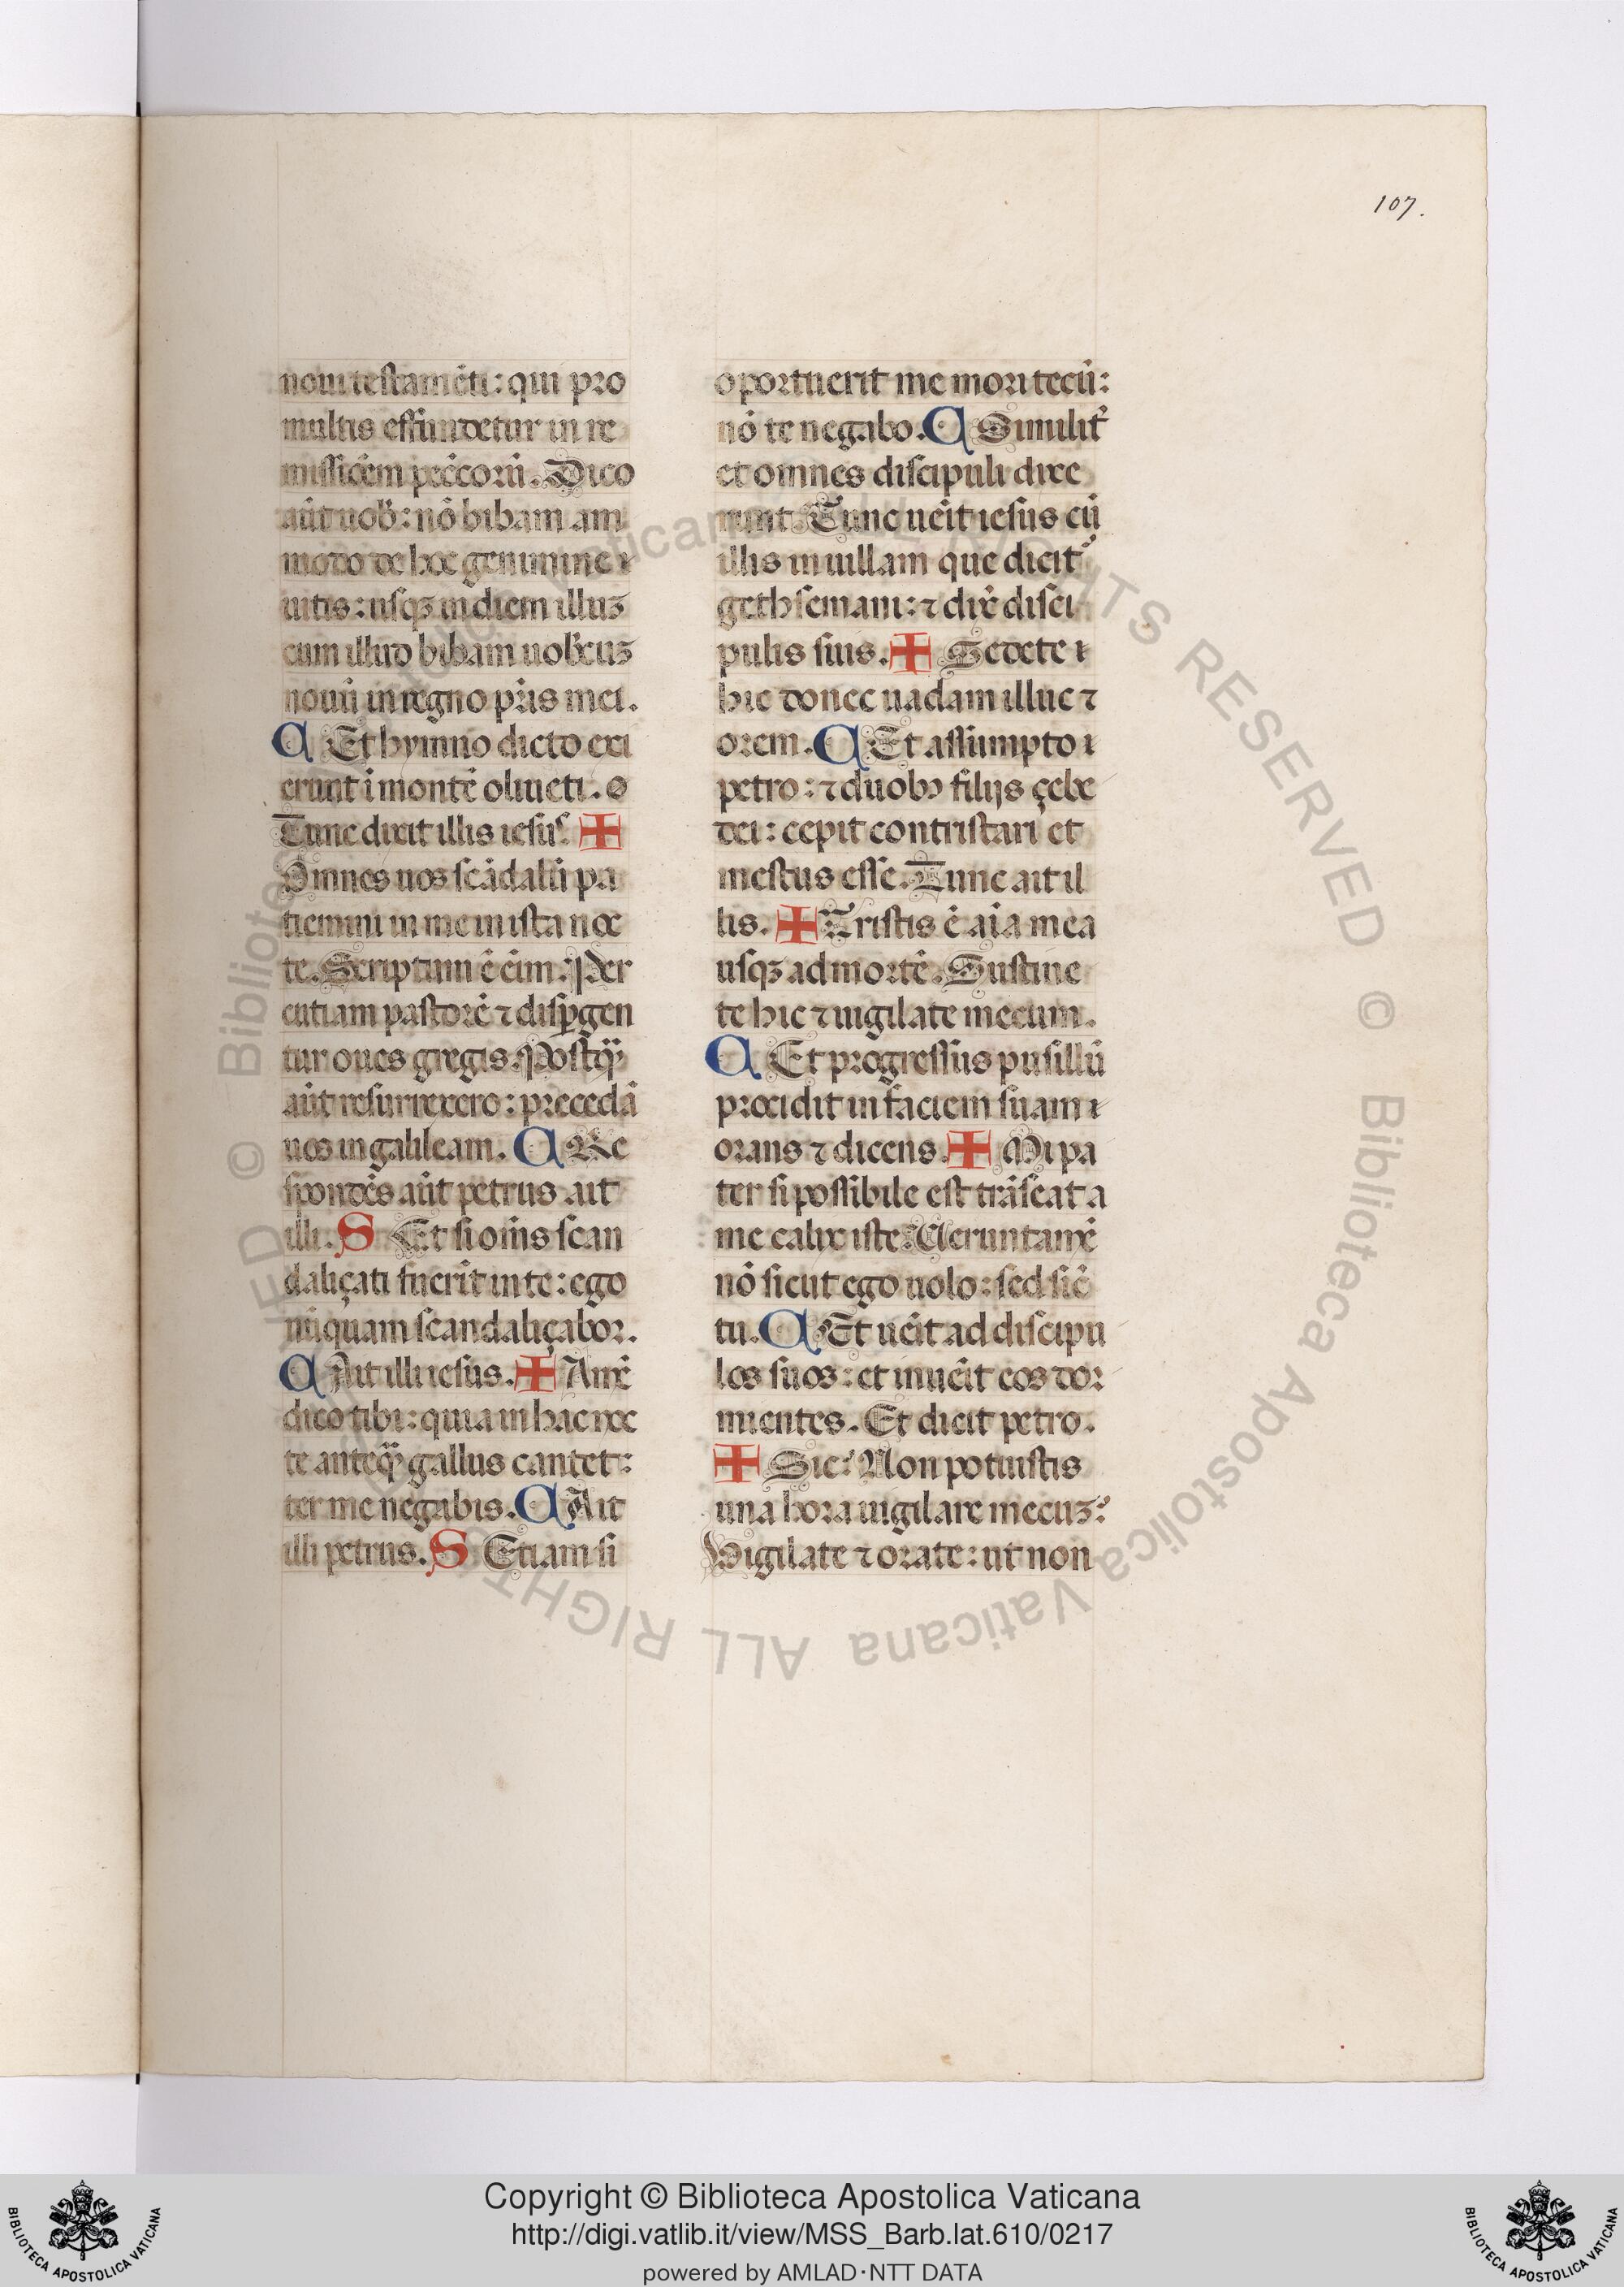 107.
noui testamēti: qui pro
multis effundetur in re
missiōem pecc̄cozū. Dico
aūt uob̄: nō bibam am
modo de hoc genimine
uitis: usqꝫ in diem illuꝫ
cum illud bibam uobiscuꝫ
nouū in regno pr̄is mei.
C Et hymno dicto exi
erunt ī montē oliueti.
Tunc dixit illis iesus. ✠
Omnes uos scādalū pa
tiemini in me in ista noc
te. Scriptum ē ēim. Per
cutiam pastorē ⁊ disꝑgen
tur oues gregis. Postꝙ̄
aūt resurrexero: precedā
uos in galileam. C Re
spondēs aūt petrus ait
illi. S Et si om̄s scan
daliçati fuerīt in te: ego
nūquam scandaliçabor.
C Ait illi iesus. ✠ Amē
dico tibi: quia in hac noc
te anteꝙ̄ gallus cantet:
ter me negabis. C Ait
illi petrus. S Etiam si
oportuerit me mori tecū:
nō te negabo. C Similit̉
et omnes discipuli dixe
runt. Tunc uēit iesus cū
illis in uillam que dicit̉
gethsemani: ⁊ dix̄ disci
pulis suis. ✠ Sedete
hic donec uadam illuc ⁊
orem. C Et assumpto
petro: ⁊ duobꝰ filijs çebe
dei: cepit contristari et
mestus esse. Tunc ait il
lis. ✠ Tristis ē aīa mea
usqꝫ ad mortē. Sustine
te hic ⁊ uigilate mecum.
C Et progressus pusillū
procidit in faciem suam
orans ⁊ dicens. ✠ Mi pa
ter si possibile est trāseat a
me calix iste. Ueruntamē
nō sicut ego uolo: sed sic̄
tu. C Et uēit ad discipu
los suos: et inuēit eos dor
mientes. Et dicit petro.
✠ Sic: Non potuistis
una hora uigilare mecuꝫ:
Uigilate ⁊ orate: ut non
Copyright © Biblioteca Apostolica Vaticana
http://digi.vatlib.it/view/MSS_Barb.lat.610/0217
powered by AMLAD·NTT DATA
BIBLIOTECA APOSTOLICA VATICANA
BIBLIOTECA APOSTOLICA VATICANA
© Biblioteca Apostolica Vaticana ALL RIGHTS RESERVED © Biblioteca Apostolica Vaticana ALL RIGHTS RESERVED